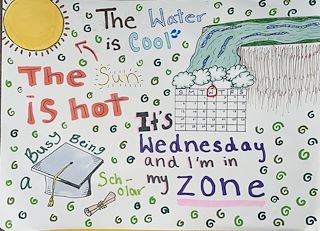 The Water
is Cool
The Sun
is hot
S M T W T F S
It's
Wednesday
and I'm in
my ZONE
Busy Being
a Sch-
olar